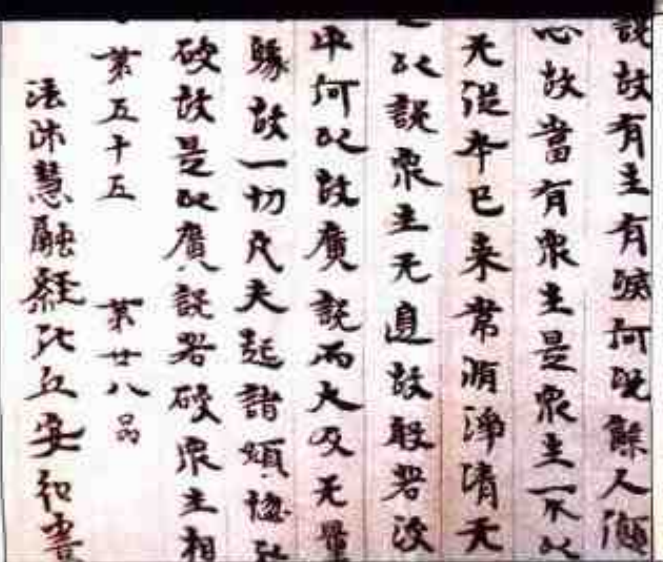 說故有生有滅何況餘人顛
故當有衆生是衆生不以
无從本已来常清淨清无
以說衆生无邊故般若波
何以故廣說而大及无量
緣故一切凡夫起諸煩惱
破故是以廣說若破衆生相
第五十五 第廿八品
法師慧融經比丘安書